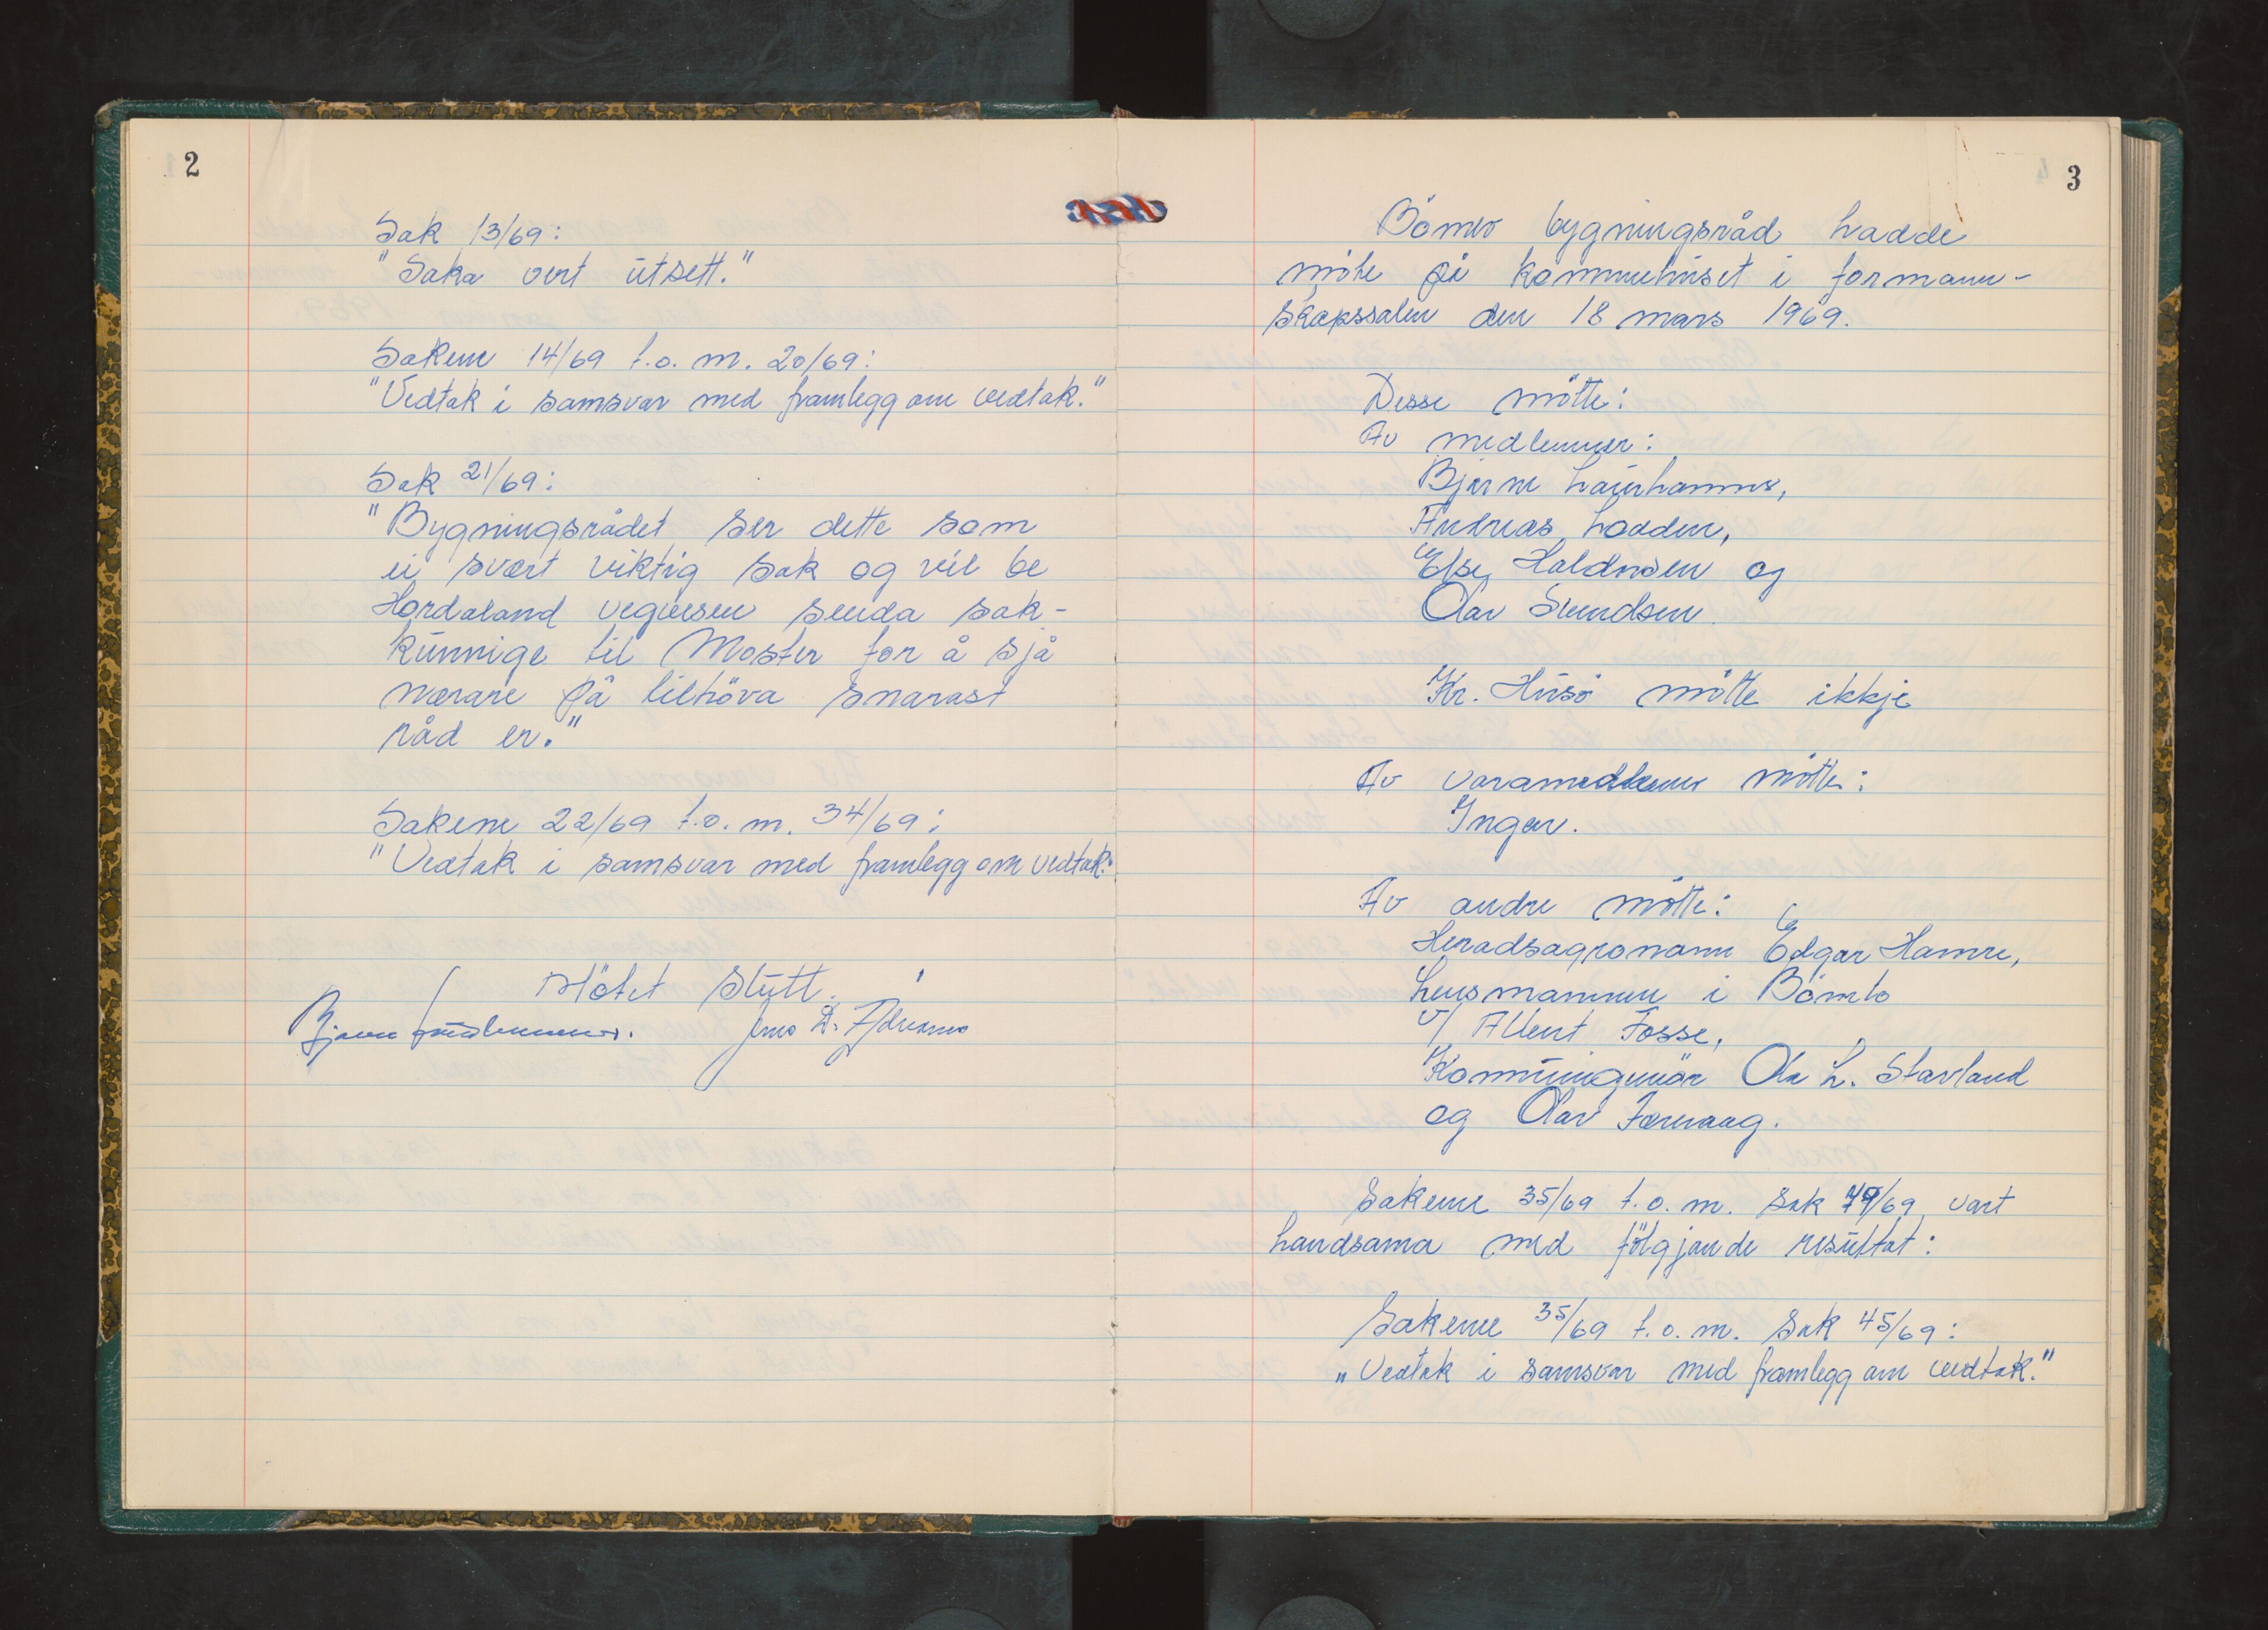 2
Sak 13/69:
"Saka vert utsett."
Sakene 14/69 t.o.m. 20/69:
"Vedtak i samsvar med framlegg om vedtak."
Sak 21/69:
"Bygningsrådet ser dette som
ei svært viktig sak og vil be
Hordaland vegvesen senda sak-
kunnige til Moster for å sjå
nærare på tilhöva snarast
råd er."
Sakene 22/69 t.o.m. 34/69:
"Vedtak i samsvar med framlegg om vedtak."
Mötet slutt.
3
Bömlo bygningsråd hadde
möte på kommunehuset i formann-
skapssalen den 18 mars 1969.
Desse mötte:
Av medlemmer:
Bjarne
Andreas Lodden,
Else Haldnsen og
Olav Svendsen.
Kr. Husö mötte ikkje
Av varamedlemer mötte:
Ingen.
Av andre mötte:
Heradsagronom Edgar Hamre,
Lensmannen i Bömlo
v/ Albert Fosse,
Kommuningeniör Ola L. Stavland
og Olav
Sakene 35/69 t.o.m. sak /69 vart
handsama med fölgjande resultat:
Sakene 35/69 t.o.m. sak 45/69:
"Vedtak i samsvar med framlegg om vedtak."